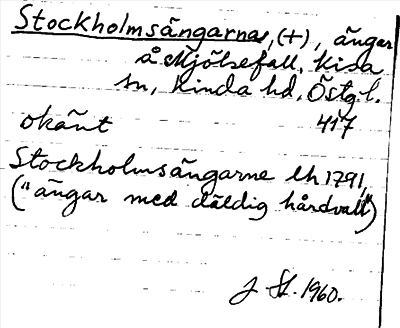 Stockholmsängarna, (+), ängar
å Mjölsefall, Kisa
sn, Kinda hd, Östg. l.
okänt 417
Stockholmsängarne lh 1791,
("ängar med däldig hårdvall")
J St. 1960.